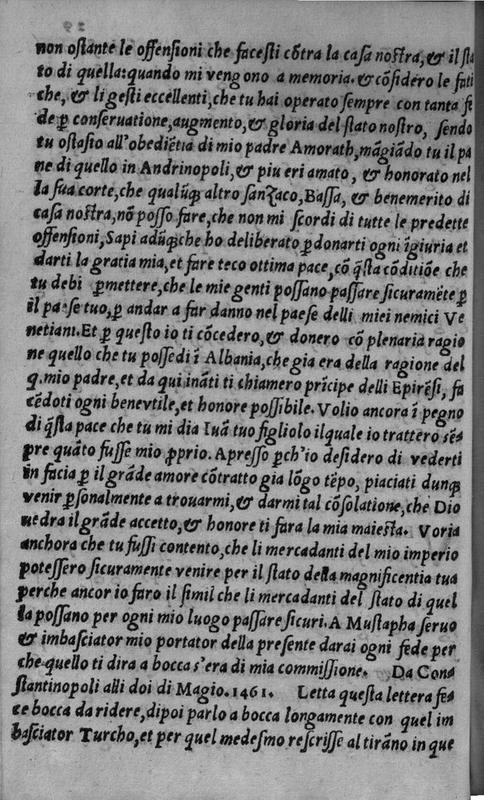 non ostante le offensioni che facesti cõtra la casa nostra, & il sta
to di quella: quando mi vengono a memoria. & cõsidero le fati
che, & li gesti eccellenti, che tu hai operato sempre con tanta fe
de ꝑ conseruatione, augmento, & gloria del stato nostro, sendo
tu ostasio all'obediẽtia di mio padre Amorath, mãgiãdo tu il pa
ne di quello in Andrinopoli, & piu eri amato, & honorato nel
la sua corte, che qualũqꝫ altro sanzaco, Bassa, & benemerito di
casa nostra, nõ posso fare, che non mi scordi di tutte le predette
offensioni, Sapi adũqꝫ che ho deliberato ꝑdonarti ogni ĩgiuria et
darti la gratia mia, et fare teco ottima pace, cõ q̃sta cõditiõe che
tu debi ꝑmettere, che le mie genti possano passare sicuramẽte ꝑ
il paese tuo, ꝑ andar a far danno nel paese delli miei nemici Ve
netiani. Et ꝑ questo io ti cõcedero, & donero cõ plenaria ragio
ne quello che tu possedi ĩ Albania, che gia era della ragione del
q. mio padre, et da qui inãti ti chiamero prĩcipe delli Epirẽsi, fa
cẽdoti ogni benevtile, et honore possibile. Volio ancora ĩ pegno
di q̃sta pace che tu mi dia Iuã tuo figliolo ilquale io trattero sẽ⸗
pre quãto fusse mio ꝓprio. Apresso ꝑch'io desidero di vederti
in facia ꝑ il grãde amore cõtratto gia lõgo tẽpo, piaciati dunqꝫ
venir ꝑsonalmente a trouarmi, & darmi tal cõsolatione, che Dio
uedra il grãde accetto, & honore ti fara la mia maiesta. Voria
anchora che tu fussi contento, che li mercadanti del mio imperio
potessero sicuramente venire per il stato della magnificentia tua
perche ancor io faro il simil che li mercadanti del stato di quel
la possano per ogni mio luogo passare sicuri. A Mustapha seruo
& imbasciator mio portator della presente darai ogni fede per
che quello ti dira a bocca s'era di mia commissione. Da Cons
stantinopoli alli doi di Magio. 1461. Letta questa lettera fe⸗
ce bocca da ridere, dipoi parlo a bocca longamente con quel im
basciator Turcho, et per quel medesmo rescrisse al tirãno in que